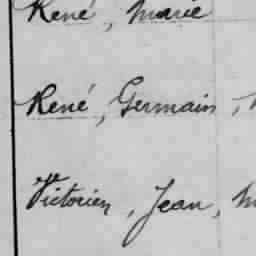 René, Marie
René, Germain,
Victorien, Jean,